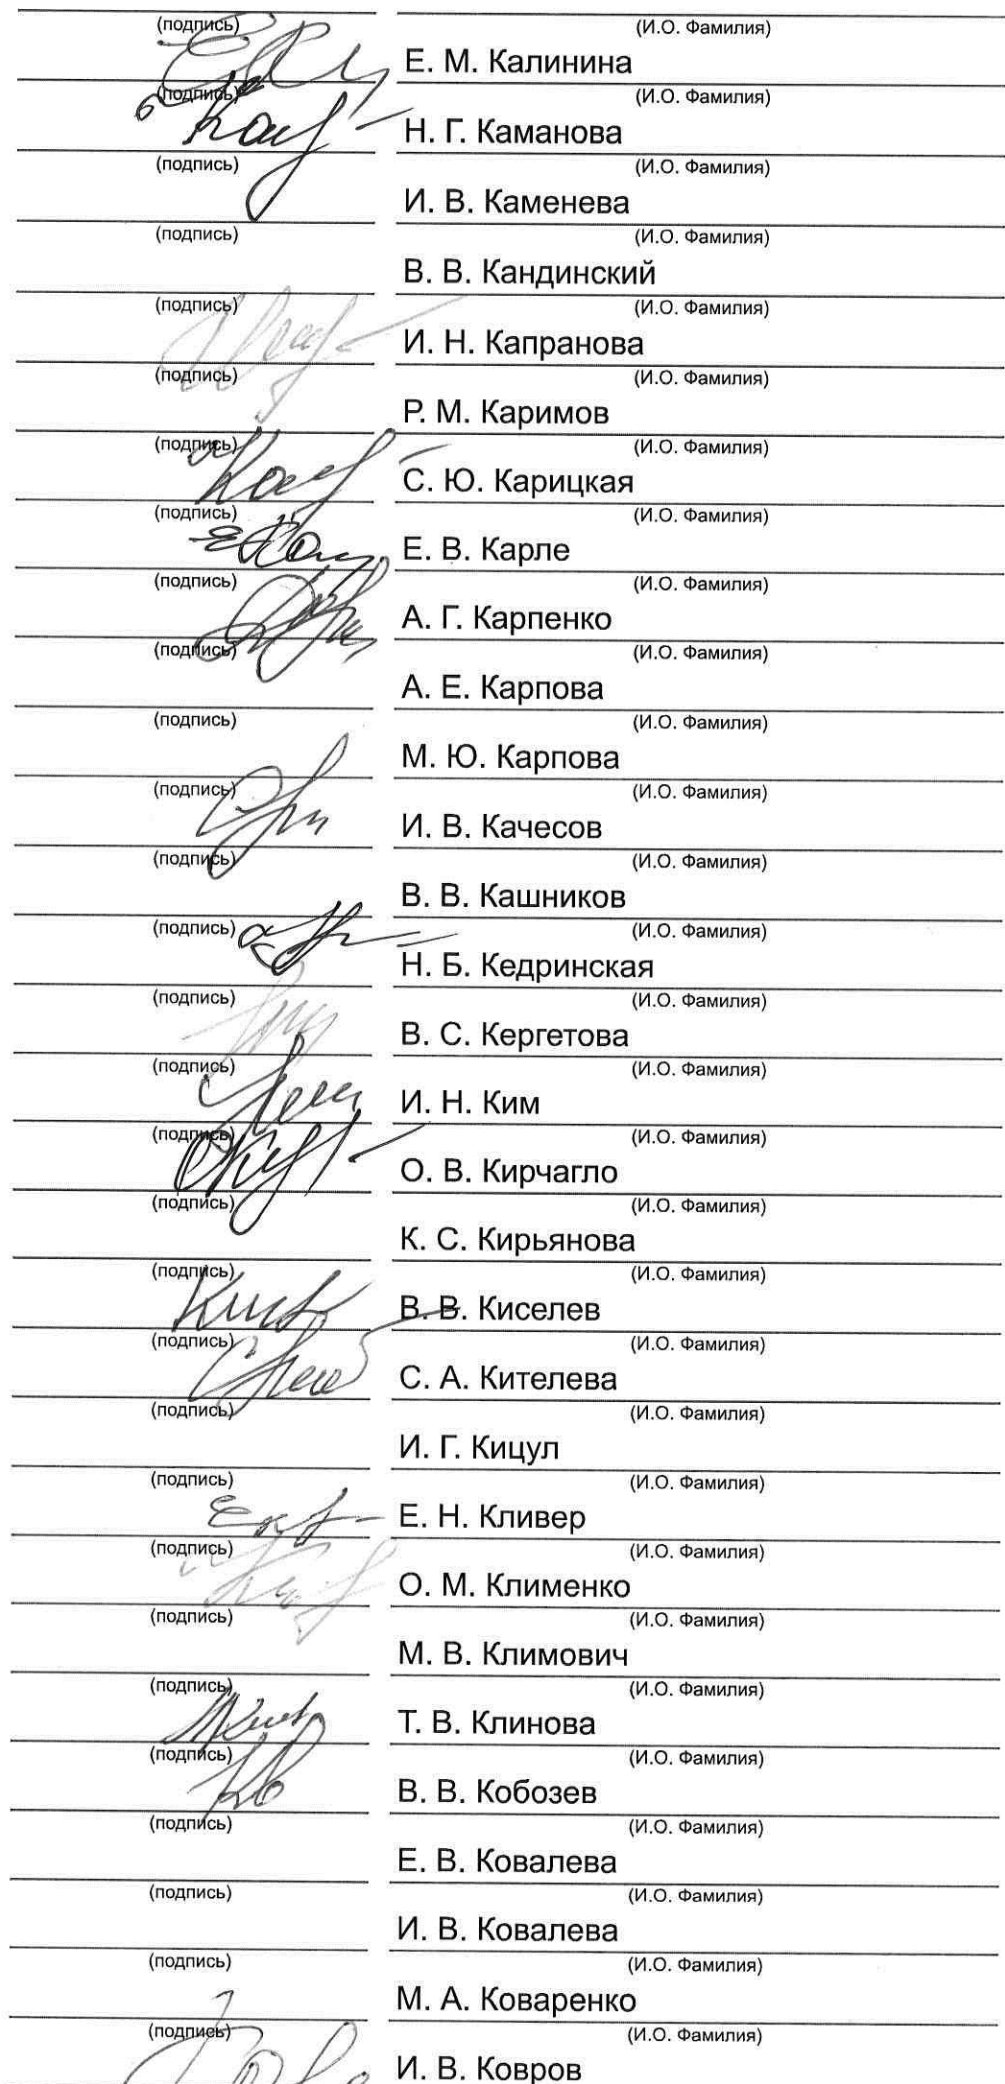 (подпись) (И.О. Фамилия)
Е. М. Калинина
(подпись) (И.О. Фамилия)
Н. Г. Каманова
(подпись) (И.О. Фамилия)
И. В. Каменева
(подпись) (И.О. Фамилия)
В. В. Кандинский
(подпись) (И.О. Фамилия)
И. Н. Капранова
(подпись) (И.О. Фамилия)
Р. М. Каримов
(подпись) (И.О. Фамилия)
С. Ю. Карицкая
(подпись) (И.О. Фамилия)
Е. В. Карле
(подпись) (И.О. Фамилия)
А. Г. Карпенко
(подпись) (И.О. Фамилия)
А. Е. Карпова
(подпись) (И.О. Фамилия)
М. Ю. Карпова
(подпись) (И.О. Фамилия)
И. В. Качесов
(подпись) (И.О. Фамилия)
В. В. Кашников
(подпись) (И.О. Фамилия)
Н. Б. Кедринская
(подпись) (И.О. Фамилия)
В. С. Кергетова
(подпись) (И.О. Фамилия)
И. Н. Ким
(подпись) (И.О. Фамилия)
О. В. Кирчагло
(подпись) (И.О. Фамилия)
К. С. Кирьянова
(подпись) (И.О. Фамилия)
В. В. Киселев
(подпись) (И.О. Фамилия)
С. А. Кителева
(подпись) (И.О. Фамилия)
И. Г. Кицул
(подпись) (И.О. Фамилия)
Е. Н. Кливер
(подпись) (И.О. Фамилия)
О. М. Клименко
(подпись) (И.О. Фамилия)
М. В. Климович
(подпись) (И.О. Фамилия)
Т. В. Клинова
(подпись) (И.О. Фамилия)
В. В. Кобозев
(подпись) (И.О. Фамилия)
Е. В. Ковалева
(подпись) (И.О. Фамилия)
И. В. Ковалева
(подпись) (И.О. Фамилия)
М. А. Коваренко
(подпись) (И.О. Фамилия)
И. В. Ковров